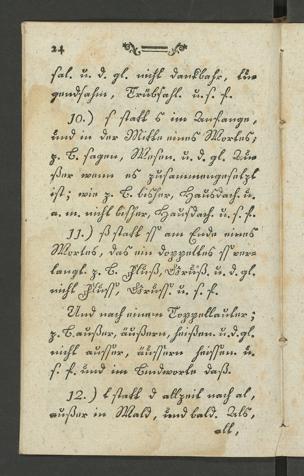 24
sal. u. d. gl. nicht dankbahr, tu-
gendsahm, Trübsahl. u. s. f.
10.) s statt S im Anfange,
und in der Mitte eines Wortes,
z. B. sagen, Wesen. u. d. gl. Au-
ßer wenn es zusammengesetzt
ist; wie z. B. bisher, Hausdach. u.
a. m. nicht bisher, Hausdach. u. s. f.
11.) ß statt ss am Ende eines
Wortes, das ein doppeltes ss ver-
langt. z. B. Fluß, Gruß, u. d. gl.
nicht Fluss, Gruss. u. s. f.
Und nach einem Doppellauter;
z. B. außer, äußern, heißen. u. d. gl.
nicht ausser, äussern heissen. u.
s. f. und im Bindworte daß.
12.) t statt d allzeit nach al,
außer in Wald, und bald. Als,
alt,